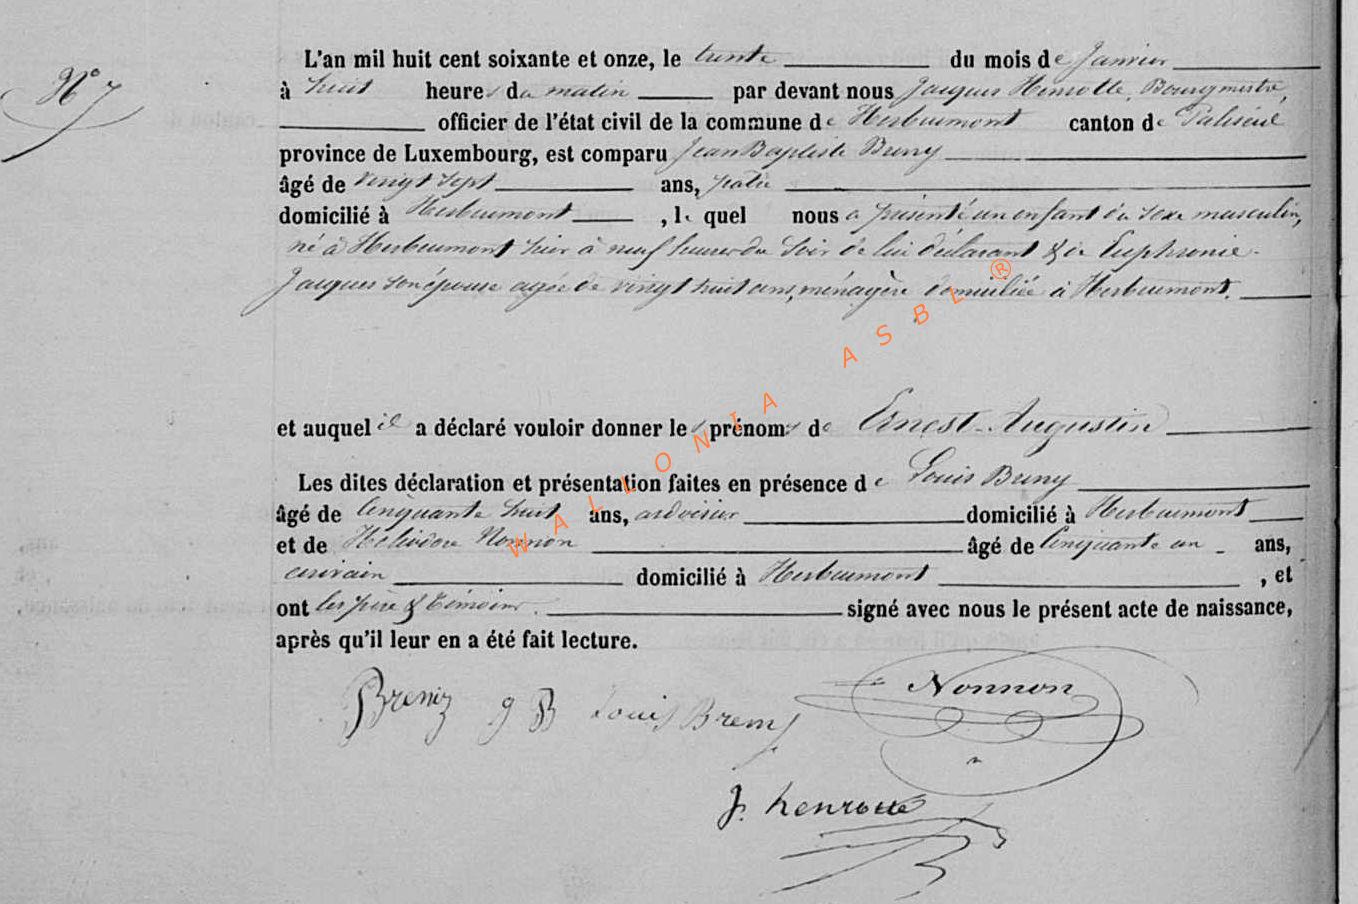 N° 7
L'an mil huit cent soixante et onze, le trente du mois de Janvier
à huit heures du matin par devant nous Jacques Henrotte, Bourgmestre,
officier de l'état civil de la commune de Herbeumont canton de Paliseul
province de Luxembourg, est comparu Jean Baptiste Breny
âgé de vingt sept ans,
domicilié à Herbeumont, le quel nous a présenté un enfant du sexe masculin,
né à Herbeumont hier à neuf heures du soir de lui déclarant & de Euphronie
Jacques son épouse agée de vingt huit ans, ménagère domiciliée à Herbeumont.
et auquel il a déclaré vouloir donner les prénoms de Ernest-Augustin
Les dites déclaration et présentation faites en présence de Louis Breny
âgé de cinquante huit ans, ardoisier domicilié à Herbeumont
et de Héliodore Nonnon âgé de cinquante un ans,
écrivain domicilié à Herbeumont, et
ont les père & témoins signé avec nous le présent acte de naissance,
après qu'il leur en a été fait lecture.
Breny J B Louis Breny Nonnon
J. henrotte
WALLONIA ASBL ®